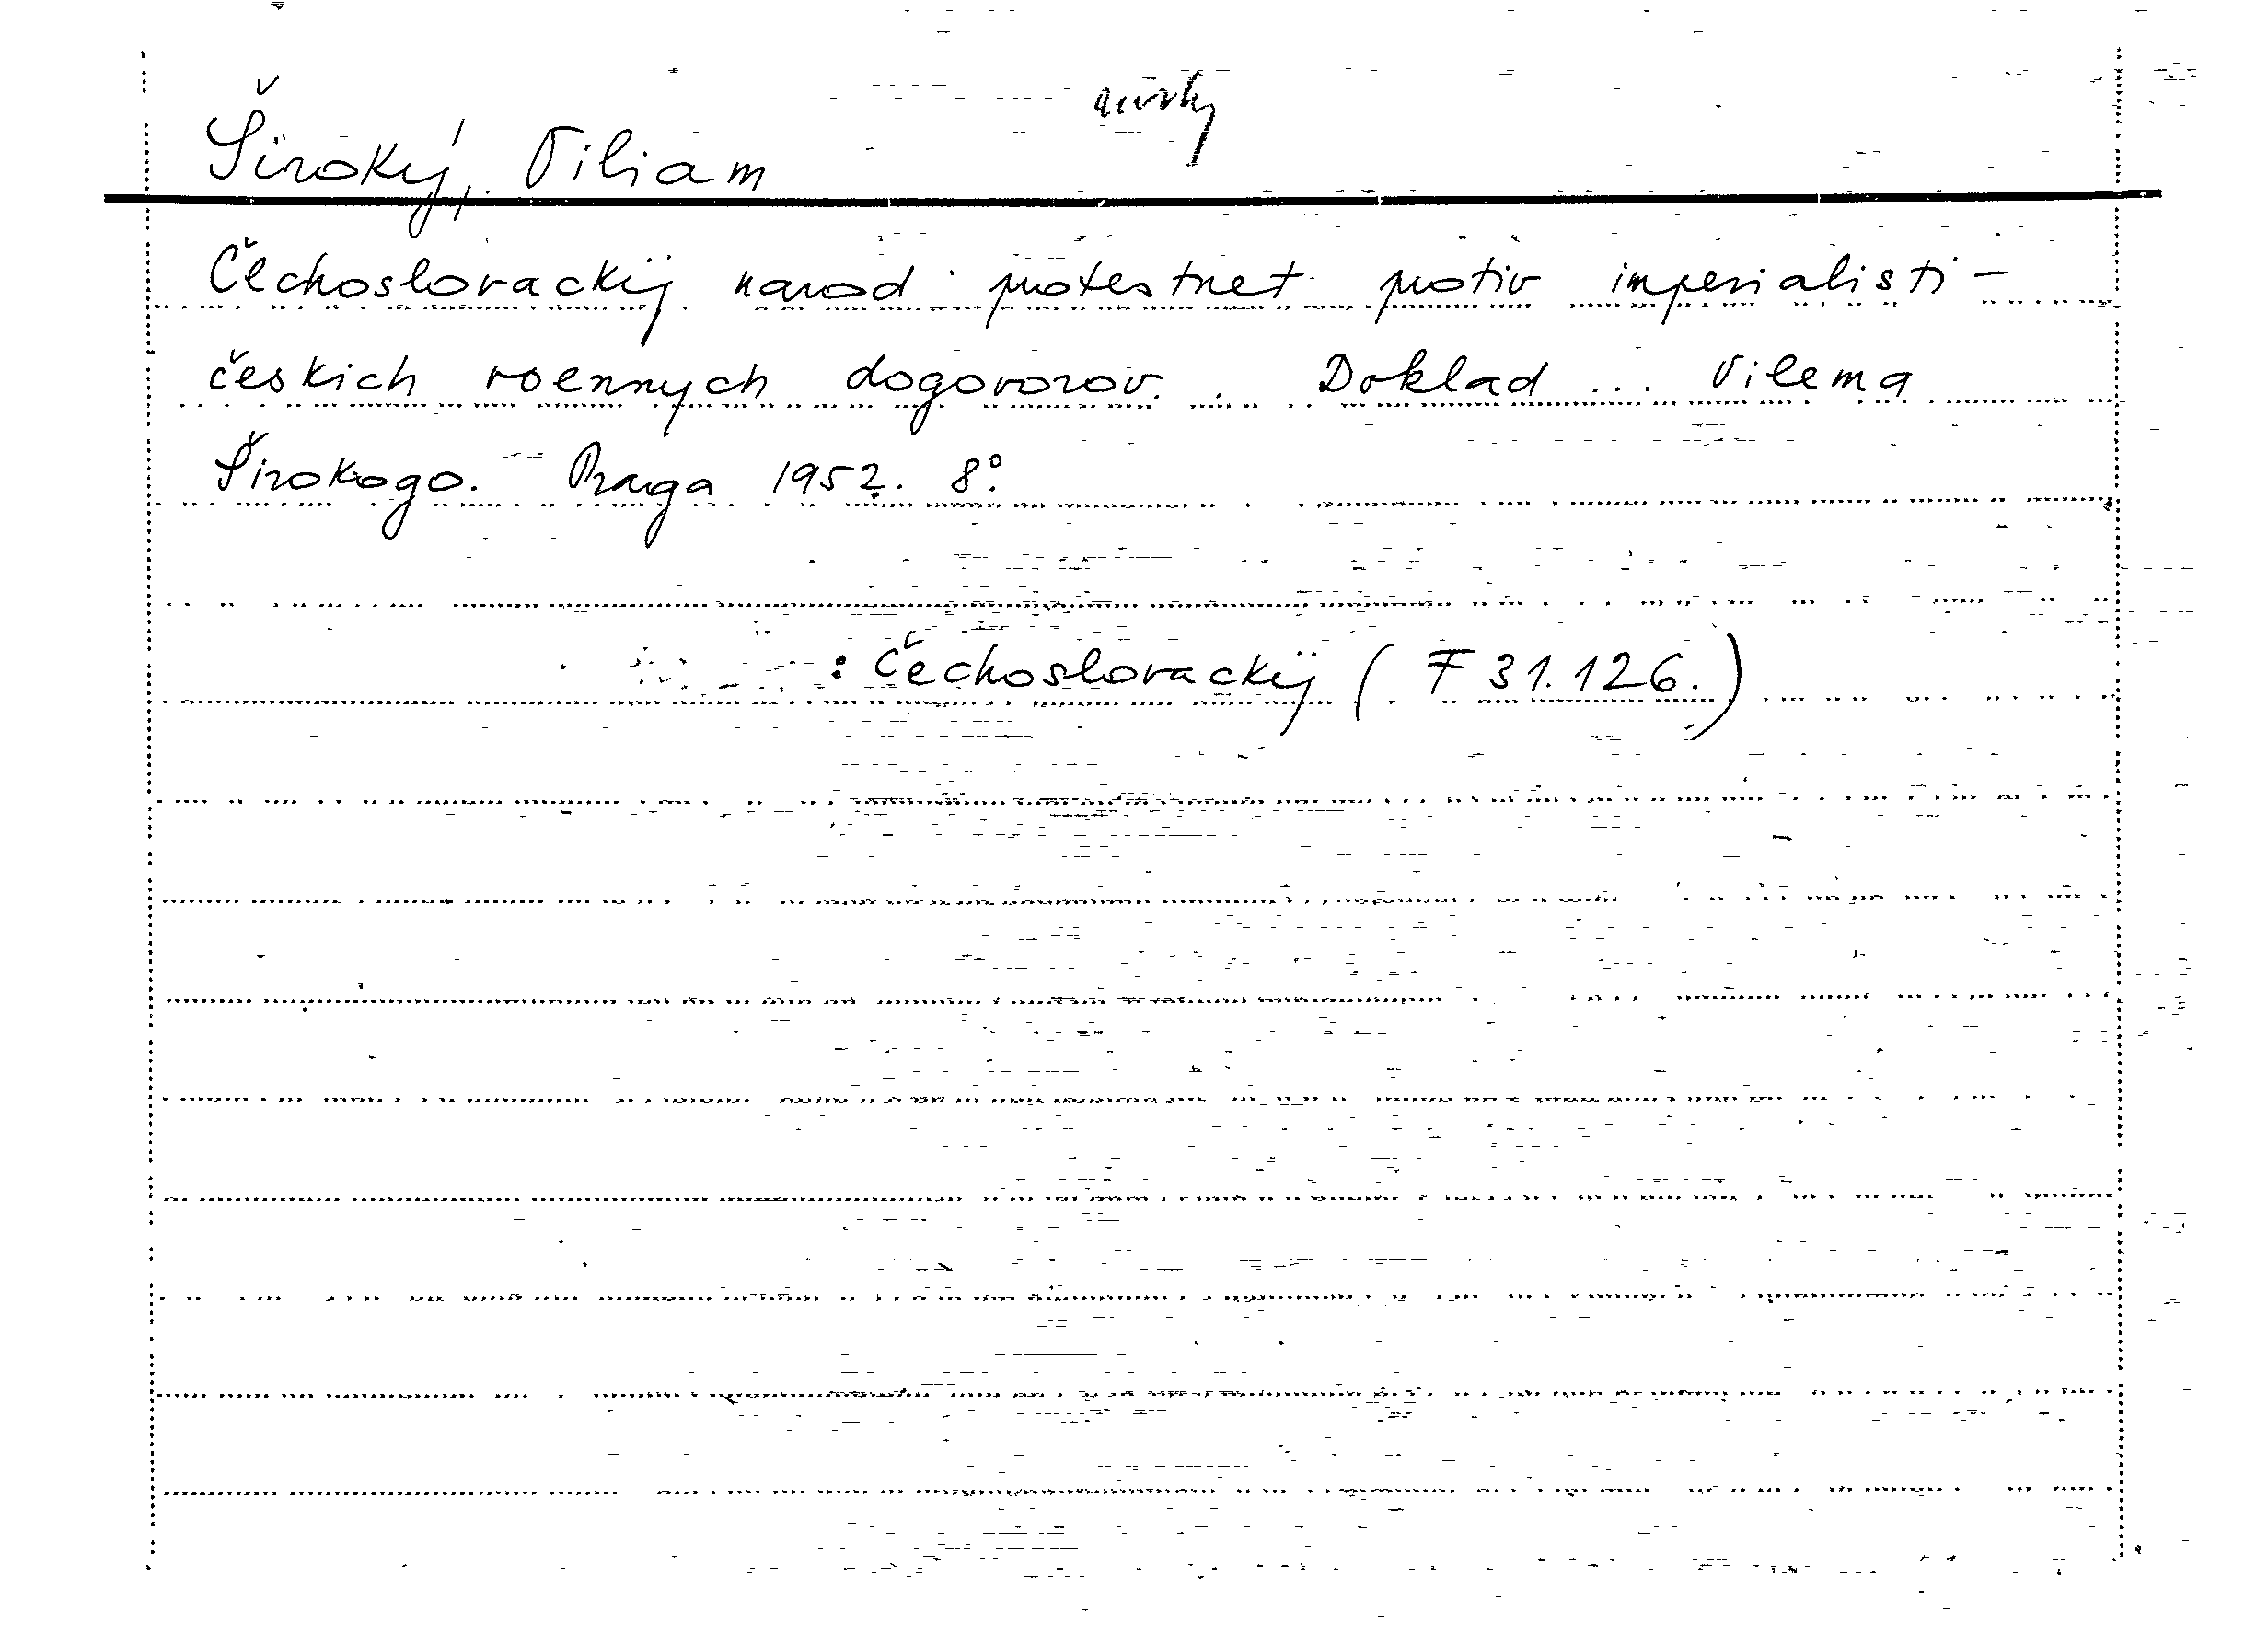 Široký, Viliam
Čechoslovackij narod protestuet protiv imperialisti-
českich voennych dogovorov. Doklad ... Vilema
Širokogo. Praga 1952. 8°
: Čechoslovackij ( F 31.126. )